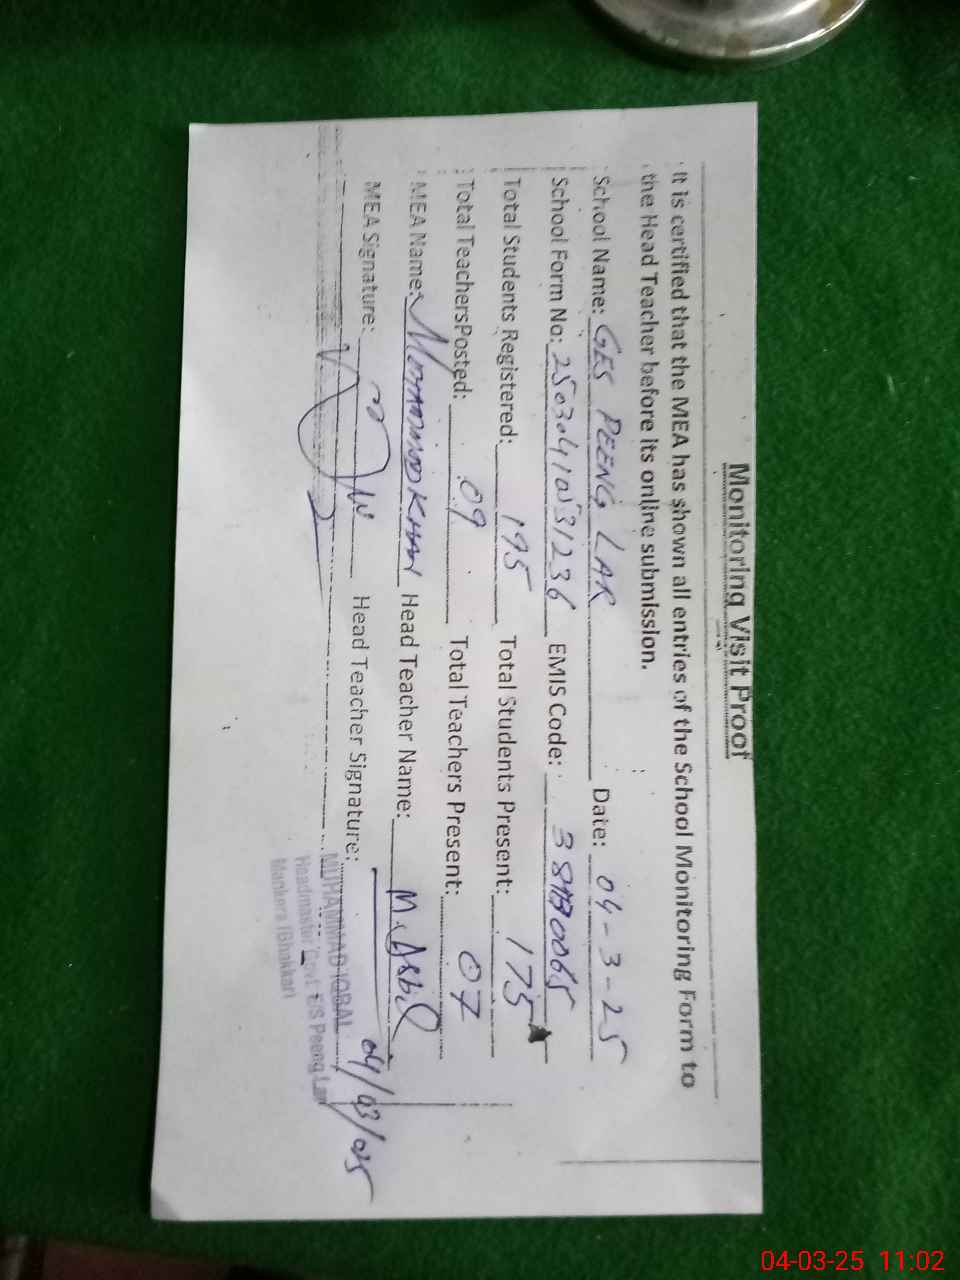 Monitoring Visit Proof
It is certified that the MEA has shown all entries of the School Monitoring Form to
the Head Teacher before its online submission.
School Name: GES PEENG LAR Date: 04-3-25
School Form No: 25030410531236 EMIS Code:
Total Students Registered: 195 Total Students Present: 175
Total Teachers Posted: 09 Total Teachers Present: 07
MEA Name: KHAN Head Teacher Name: M.
MEA Signature: Head Teacher Signature:
04/03/025
MUHAMMAD IQBAL
Headmaster Govt: ES Peeng Lar
Mankera (Bhakkar)
04-03-25 11:02